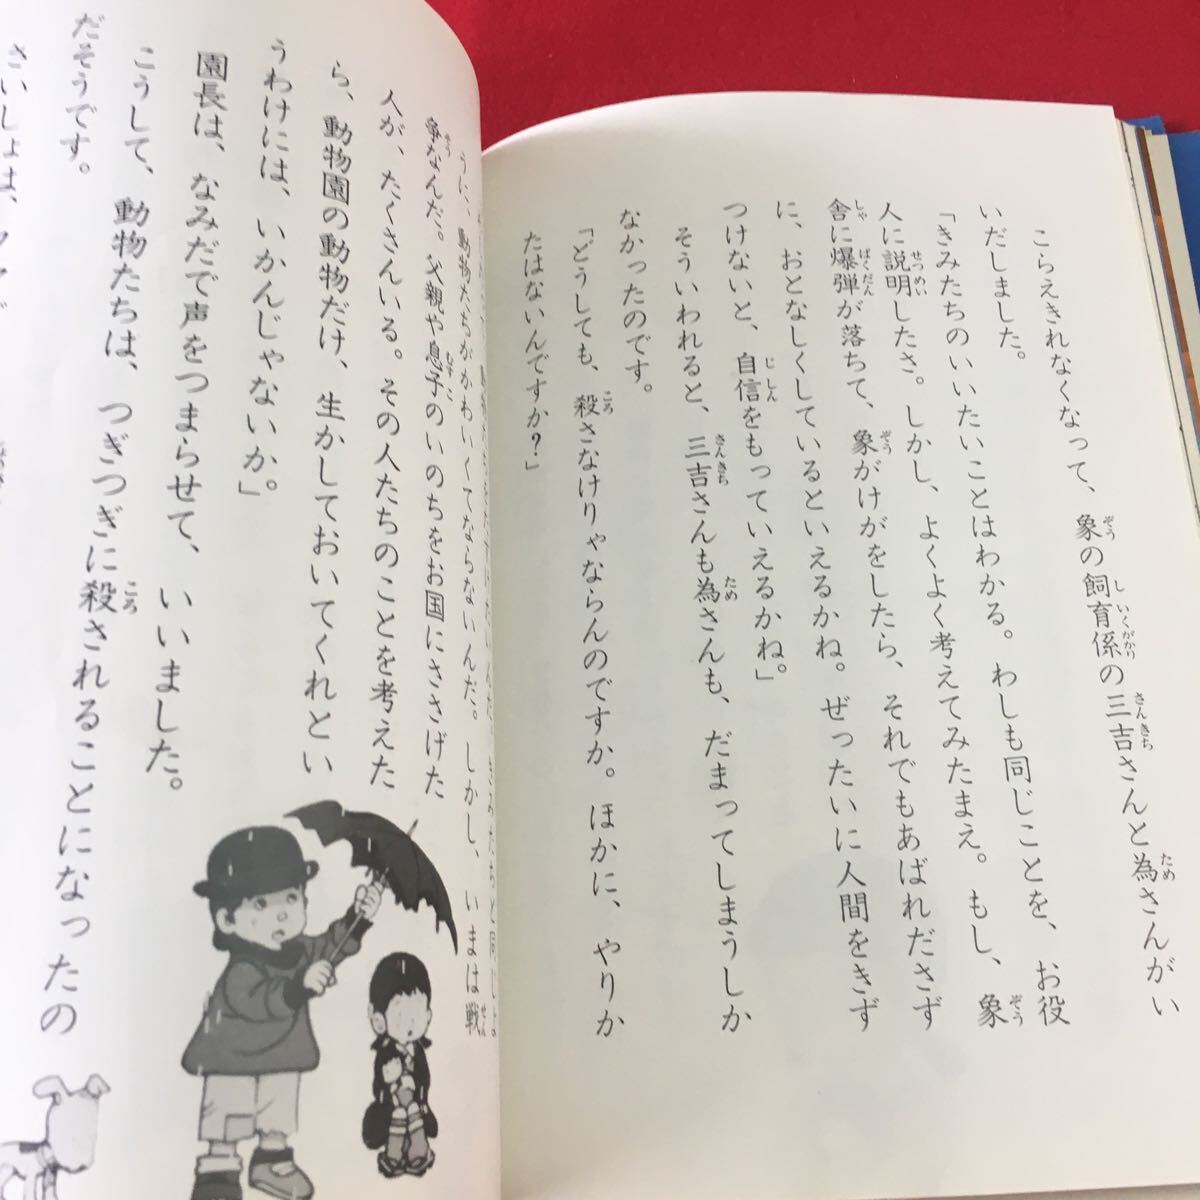 こらえきれなくなって、象の飼育係の三吉さんと為さんがい
いだしました。
「きみたちのいいたいことはわかる。わしも同じことを、お役
人に説明したさ。しかし、よくよく考えてみたまえ。もし、象
舎に爆弾が落ちて、象がけがをしたら、それでもあばれださず
に、おとなしくしているといえるかね。ぜったいに人間をきず
つけないと、自信をもっていえるかね。」
そういわれると、三吉さんも為さんも、だまってしまうしか
なかったのです。
「どうしても、殺さなけりゃならんのですか。ほかに、やりか
たはないんですか？」
うに、動物たちがかわいくてならないんだ。しかし、いまは戦
争なんだ。父親や息子のいのちをお国にささげた
人が、たくさんいる。その人たちのことを考えた
ら、動物園の動物だけ、生かしておいてくれとい
うわけには、いかんじゃないか。」
園長は、なみだで声をつまらせて、いいました。
こうして、動物たちは、つぎつぎに殺されることになったの
だそうです。
さいしょは、